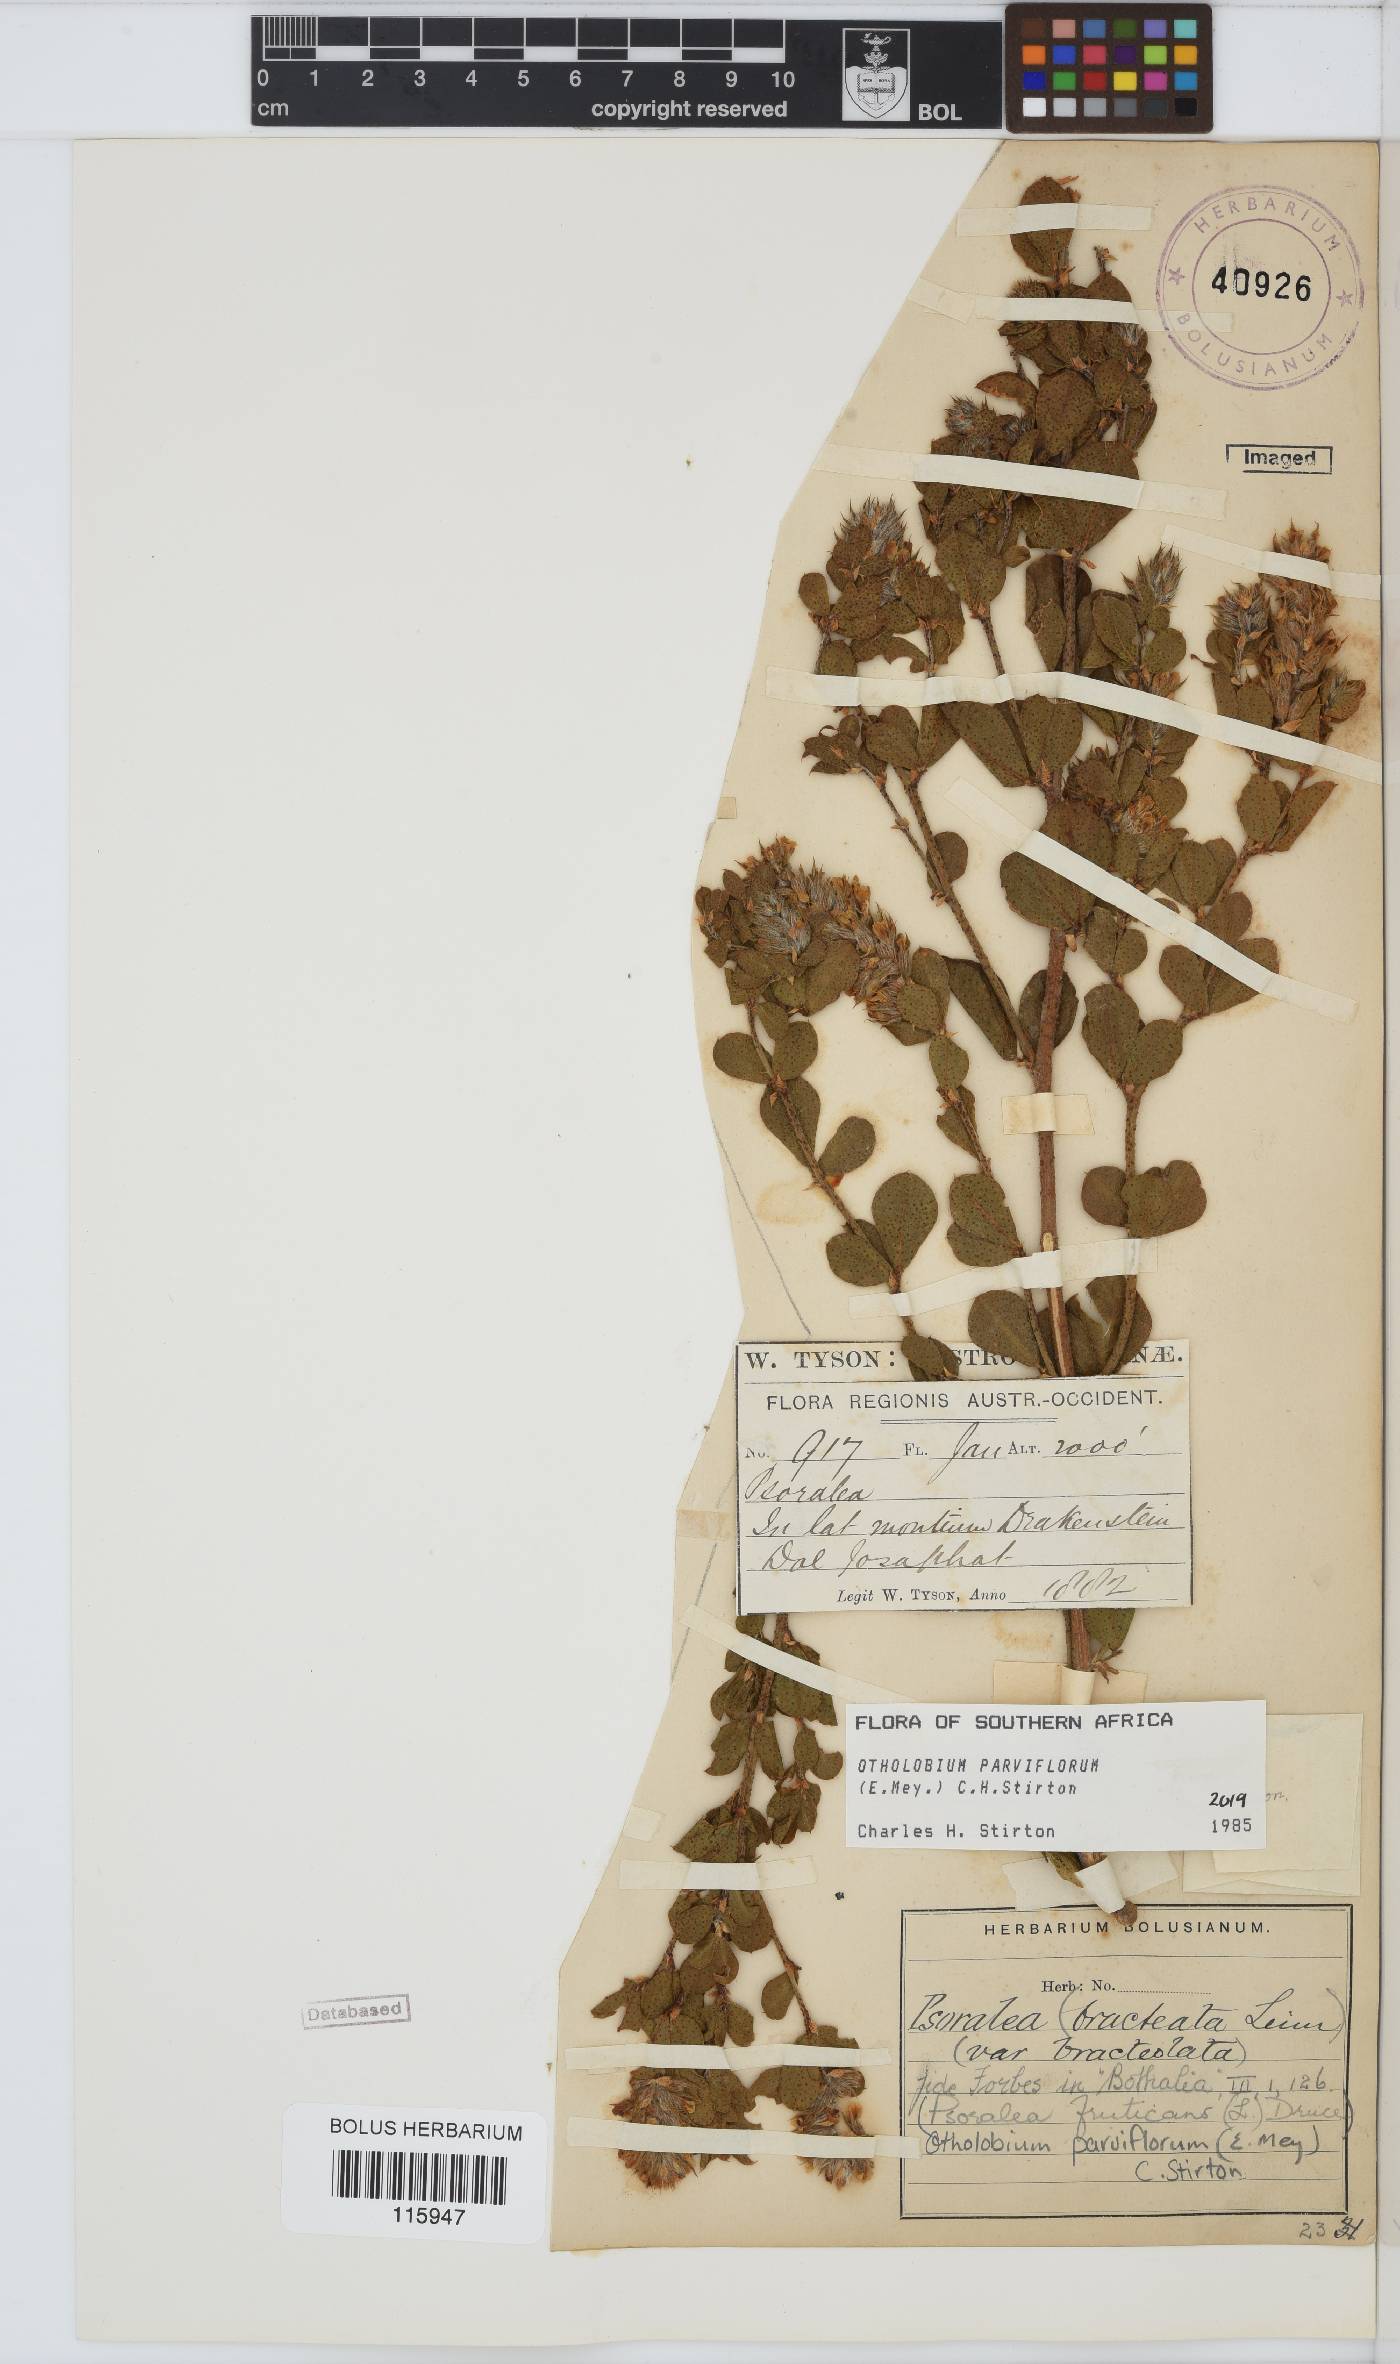 0 1 2 3 4 5 6 7 8 9 10
cm copyright reserved BOL
HERBARIUM
40926
BOLUSIANUM
Imaged
W. TYSON:
FLORA REGIONIS AUSTR.-OCCIDENT.
No. 917 FL. Jan ALT. 2000'
Psoralea
In lat montium Drakenstein
Dal Josaphat
Legit W. TYSON, Anno 1882
FLORA OF SOUTHERN AFRICA
OTHOLOBIUM PARVIFLORUM
(E.Mey.) C.H.Stirton
2019
Charles H. Stirton 1985
HERBARIUM BOLUSIANUM.
Herb: No.
Psoralea (bracteata Linn)
(var bracteolata)
fide Forbes in "Bothalia", III, 1, 126.
(Psoralea fruticans (L.) Druce)
Otholobium parviflorum (E. Mey)
C. Stirton
23
Databased
BOLUS HERBARIUM
115947